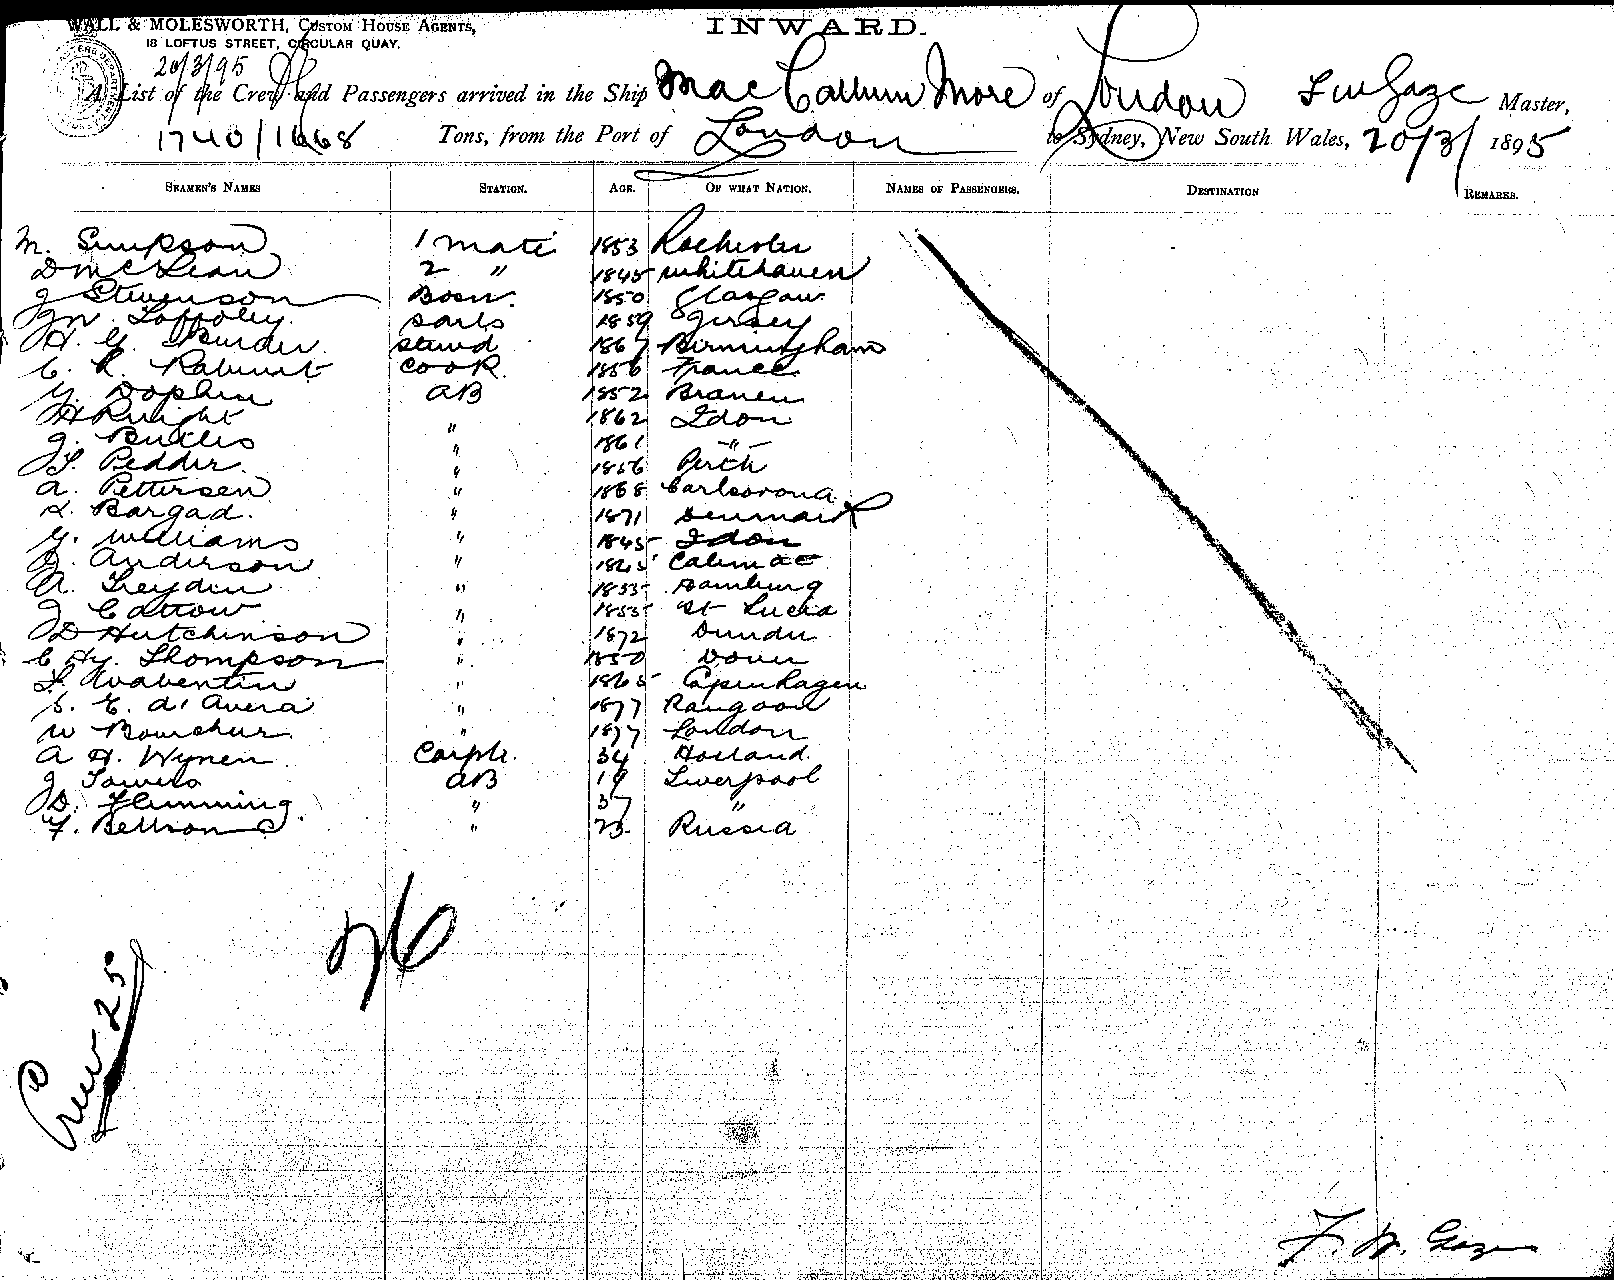 WALL & MOLESWORTH, CUSTOM HOUSE AGENTS,
18 LOFTUS STREET, CIRCULAR QUAY.
INWARD.
20/3/95
A List of the Crew and Passengers arrived in the Ship Mac Callum More of London F W Gaze Master,
1740/1668 Tons, from the Port of London to Sydney, New South Wales, 20/3/ 1895
SEAMEN'S NAMES STATION. AGE. OF WHAT NATION. NAMES OF PASSENGERS. DESTINATION REMARKS.
M. Simpson 1 mate 1853 Rochester
D McLean 2 " 1845 Whitehaven
J Stevenson Bosn. 1850 Glasgow
Jn. sails 1859 Jersey
H. G. Burder stewd 1867 Birmingham
C. R. cook. 1856 France
G. Dophin AB 1852
H Knight " 1862 Ldon
J. Butlers " 1861 "
J. F. Pedder. " 1856 Perth
A. Pettersen " 1868 Carlscrona
L. Bargad. " 1871 Denmark
G. Williams " 1845 Ldon
J. Anderson "
A. Leyden " Hamburg
J Cattow " St Lucia
J D Hutchinson " 1872 Dundee
C Hy. Thompson " 1850 Dover
" 1865 Copenhagen
S. E. d' Avera " 1877 Rangoon
W Bourchier. " 1877 London
A H. Wynen Carptr. 34 Holland.
J Towers AB 19 Liverpool
J D. Flemming. " 37 "
F. " 23 Russia
26
Crew 25
F. W. Gaze